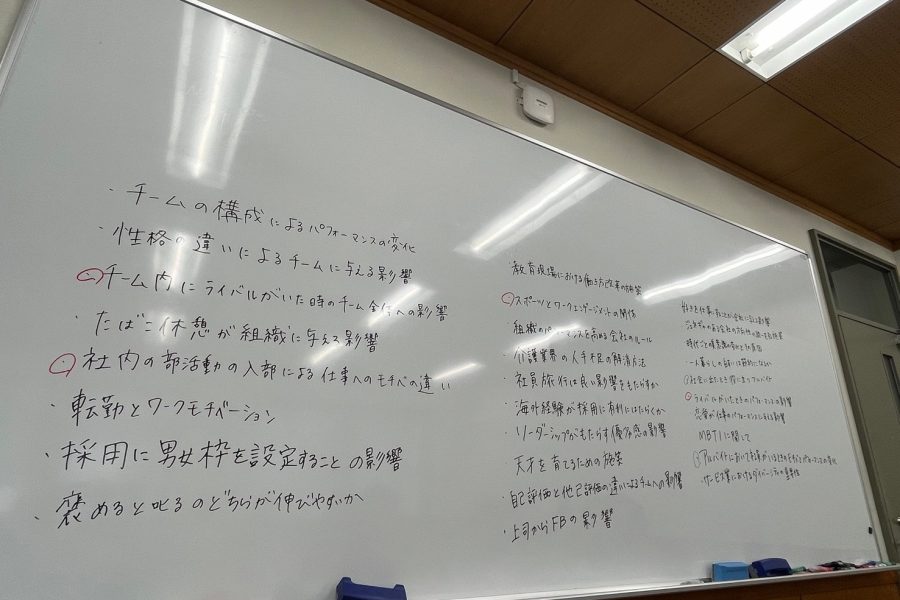 ・チームの構成によるパフォーマンスの変化
・性格の違いによるチームに与える影響
・チーム内にライバルがいた時のチーム全体への影響
・たばこ休憩が組織に与える影響
・社内の部活動の入部による仕事へのモチベの違い
・転勤とワークモチベーション
・採用に男女枠を設定することの影響
・褒めると叱るのどちらが伸びやすいか
・教育現場における働き方改革の施策
・スポーツとワークエンゲージメントの関係
組織のパフォーマンスを高める会社のルール
・介護業界の人手不足の解消方法
・社員旅行は良い影響をもたらすか
・海外経験が採用に有利にはたらくか
・リーダーシップがもたらす優劣感の影響
・天才を育てるための施策
・自己評価と他己評価の違いによるチームへの影響
・上司からFBの影響
ライバルがいたときのパフォーマンスの影響
恋愛が仕事のパフォーマンスに与える影響
MBTIに関して
サービス業におけるダイバーシティの重要性